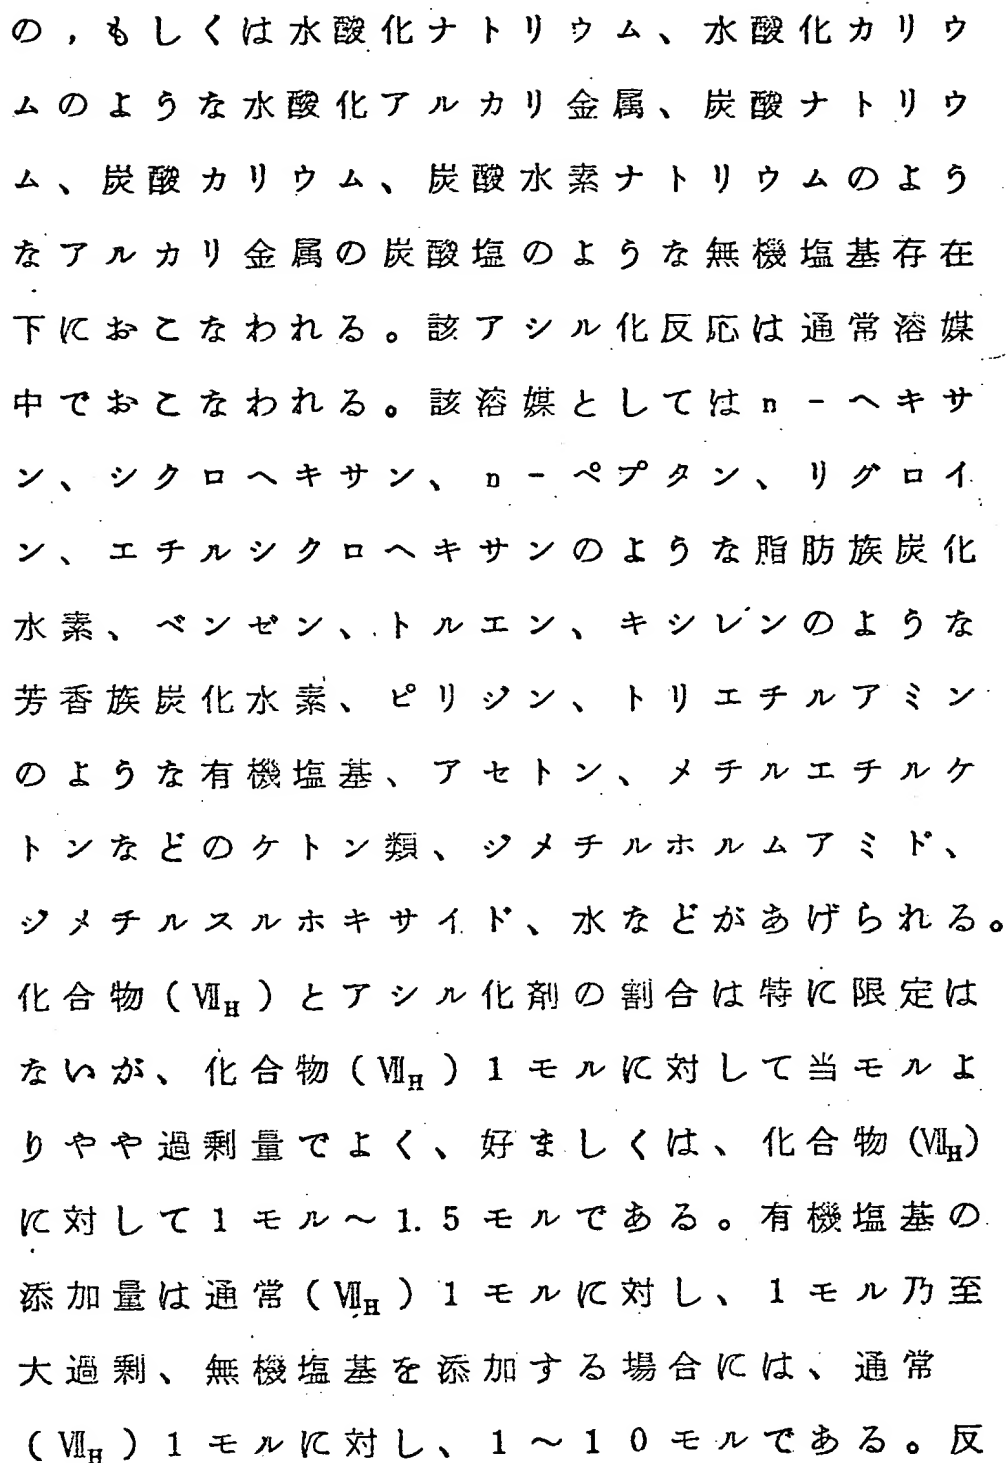 の，もしくは水酸化ナトリウム、水酸化カリウ
ムのような水酸化アルカリ金属、炭酸ナトリウ
ム、炭酸カリウム、炭酸水素ナトリウムのよう
なアルカリ金属の炭酸塩のような無機塩基存在
下におこなわれる。該アシル化反応は通常溶媒
中でおこなわれる。該溶媒としてはn－ヘキサ
ン、シクロヘキサン、n－ペプタン、リグロイ
ン、エチルシクロヘキサンのような脂肪族炭化
水素、ベンゼン、トルエン、キシレンのような
芳香族炭化水素、ピリジン、トリエチルアミン
のような有機塩基、アセトン、メチルエチルケ
トンなどのケトン類、ジメチルホルムアミド、
ジメチルスルホキサイド、水などがあげられる。
化合物(Ⅶ_H)とアシル化剤の割合は特に限定は
ないが、化合物(Ⅶ_H)1モルに対して当モルよ
りやや過剰量でよく、好ましくは、化合物(Ⅶ_H)
に対して1モル～1.5モルである。有機塩基の
添加量は通常(Ⅶ_H)1モルに対し、1モル乃至
大過剰、無機塩基を添加する場合には、通常
(Ⅶ_H)1モルに対し、1～10モルである。反